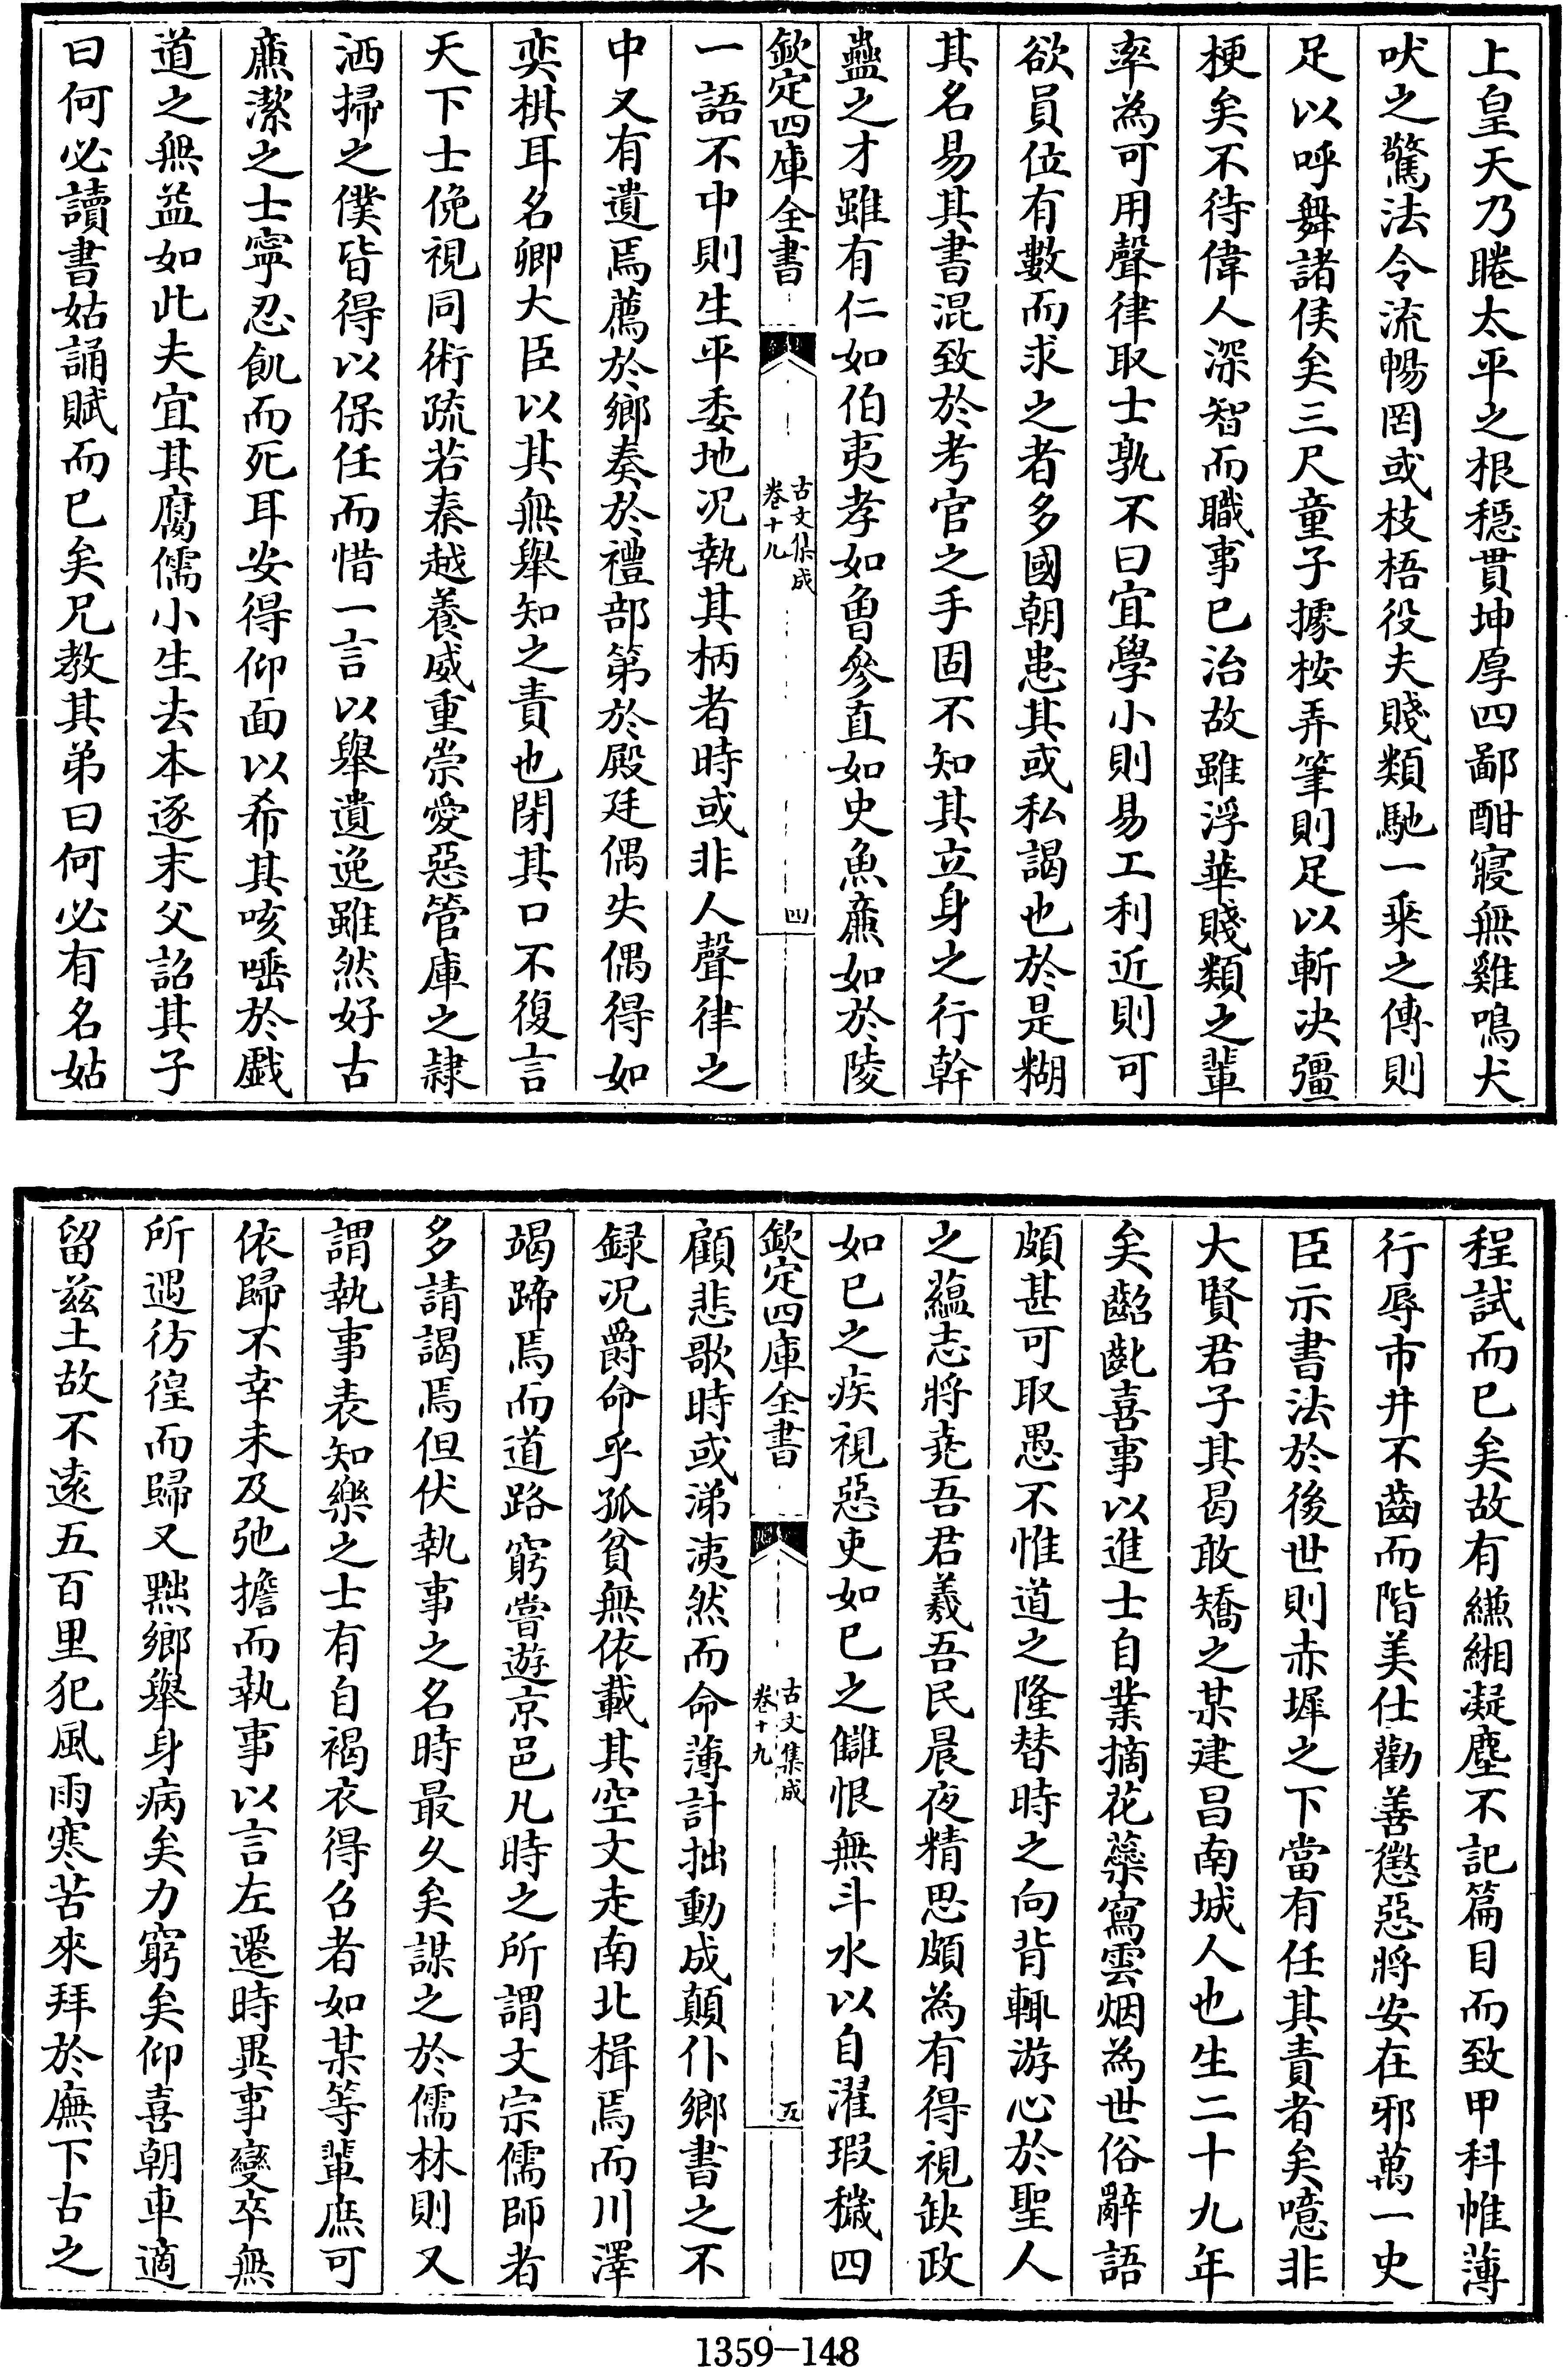 上皇天乃睠太平之根穩貫坤厚四鄙酣寢無雞鳴犬
吠之驚法令流暢罔或枝梧役夫賤類馳一乘之傳則
足以呼舞諸侯矣三尺童子據桉弄筆則足以斬决彊
梗矣不待偉人深智而職事已治故雖浮華賤類之輩
率為可用聲律取士孰不曰宜學小則易工利近則可
欲員位有數而求之者多國朝患其或私謁也於是糊
其名易其書混致於考官之手固不知其立身之行幹
蠱之才雖有仁如伯夷孝如魯參直如史魚亷如於陵
欽定四庫全書
古文集成
卷十九
四
一語不中則生平委地况執其柄者時或非人聲律之
中又有遺焉薦於鄉奏於禮部第於殿廷偶失偶得如
奕棋耳名卿大臣以其無舉知之責也閉其口不復言
天下士俛視同術疏若秦越養威重崇愛惡管庫之隷
洒掃之僕皆得以保任而惜一言以舉遺逸雖然好古
亷潔之士寧忍飢而死耳安得仰面以希其咳唾於戲
道之無益如此夫宜其腐儒小生去本逐末父詔其子
曰何必讀書姑誦賦而已矣兄教其弟曰何必有名姑
程試而已矣故有縑緗凝塵不記篇目而致甲科帷薄
行辱市井不齒而階美仕勸善懲惡將安在邪萬一史
臣示書法於後世則赤墀之下當有任其責者矣噫非
大賢君子其曷敢矯之某建昌南城人也生二十九年
矣齠齔喜事以進士自業摘花蘂寫雲烟為世俗辭語
頗甚可取愚不惟道之隆替時之向背輒游心於聖人
之蘊志將堯吾君羲吾民晨夜精思頗為有得視缺政
如已之疾視惡吏如已之讎恨無斗水以自濯瑕穢四
欽定四庫全書
古文集成
卷十九
五
顧悲歌時或涕洟然而命薄計拙動成顛仆鄉書之不
録况爵命乎孤貧無依載其空文走南北揖焉而川澤
竭蹄焉而道路窮嘗遊京邑凡時之所謂文宗儒師者
多請謁焉但伏執事之名時最久矣謀之於儒林則又
謂執事表知樂之士有自褐衣得召者如某等輩庶可
依歸不幸未及弛擔而執事以言左遷時異事變卒無
所遇彷徨而歸又黜鄉舉身病矣力窮矣仰喜朝車適
留兹土故不逺五百里犯風雨寒苦來拜於廡下古之
1359-148